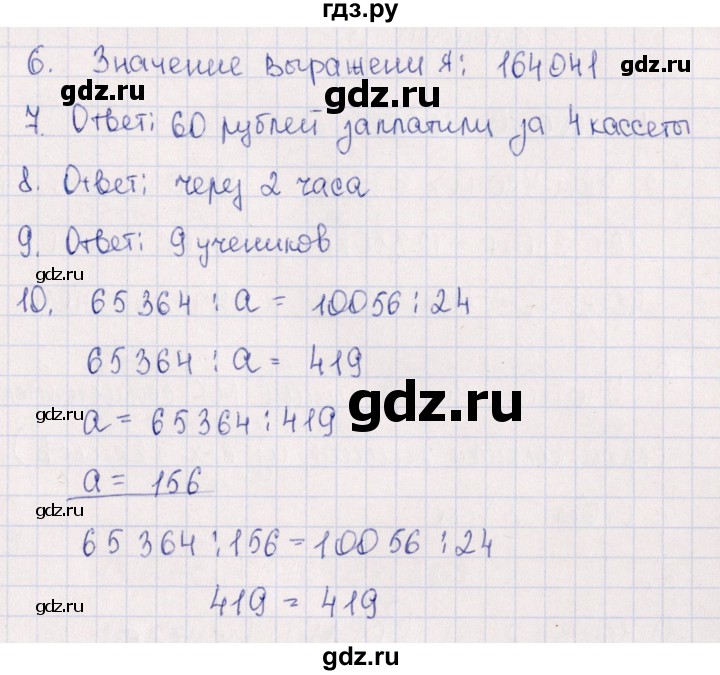 гдз.ру
6. Значение выражения: 164041 gdz.ru
gdz.ru gdz.ru
7. Ответ: 60 рублей заплатили за 4 кассеты
8. Ответ: через 2 часа
9. Ответ: 9 учеников
gdz.ru
10. 65364 : a = 10056 : 24
65364 : a = 419
gdz.ru a = 65364 : 419 gdz.ru
a = 156
gdz.ru
65364 : 156 = 10056 : 24
gdz.ru 419 = 419
gdz.ru